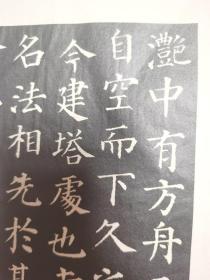 灩中有方舟又
自空而下久
今建塔處也
名法相先於其